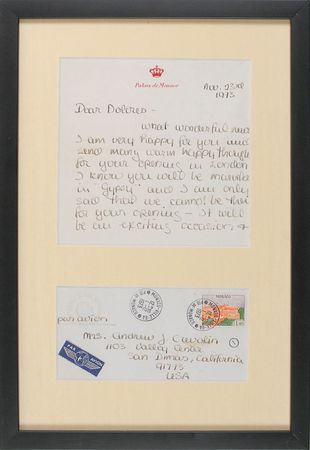 Palais de Monaco
Nov. 23rd
1973
Dear Dolores -
What wonderful news
I am very happy for you and
send many warm happy thoughts
for your opening in London
I know you will be
in Gypsy and I am only
sad that we cannot be there
for your opening - It will
be an exciting occasion &
MONACO
par avion
Mrs. Andrew J
1103 Valley
San Dimas, California
91773
USA
PAR AVION